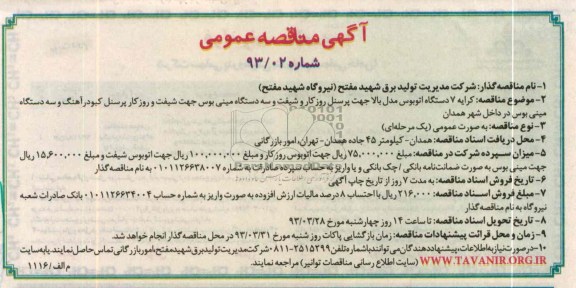 آگهی مناقصه عمومی
شماره ۹۳/۰۲
۱-نام مناقصه‌گذار: شرکت مدیریت تولید برق شهید مفتح (نیروگاه شهید مفتح)
۲-موضوع مناقصه: کرایه ۷ دستگاه اتوبوس مدل بالا جهت پرسنل روز کار و شیفت و سه دستگاه مینی بوس جهت شیفت و روز کار پرسنل کبودرآهنگ و سه دستگاه
مینی بوس در داخل شهر همدان
۳- نوع مناقصه: به صورت عمومی (یک مرحله‌ای)
۴- محل دریافت اسناد مناقصه: همدان- کیلومتر ۴۵ جاده همدان- تهران، امور بازرگانی
۵- میزان سپرده شرکت در مناقصه: مبلغ ۷۵,۰۰۰,۰۰۰ ریال جهت اتوبوس روز کار و مبلغ ۱۰۰,۰۰۰,۰۰۰ ریال جهت اتوبوس شیفت و مبلغ ۱۵,۶۰۰,۰۰۰ ریال
جهت مینی بوس به صورت ضمانت‌نامه بانکی / چک بانکی و یا واریز به حساب سپرده صادرات به شماره ۰۱۰۱۱۲۶۶۳۸۰۰۷
۶- تاریخ فروش اسناد مناقصه: به مدت ۷ روز از تاریخ چاپ آگهی
۷- مبلغ فروش اسناد مناقصه: ۲۱۶,۰۰۰ ریال با احتساب ۸ درصد مالیات ارزش افزوده به صورت واریز به شماره حساب ۰۱۰۱۱۲۶۶۳۴۰۰۴ بانک صادرات شعبه
نیروگاه به نام مناقصه‌گذار
۸- تاریخ تحویل اسناد مناقصه: تا ساعت ۱۴ روز چهارشنبه مورخ ۹۳/۰۳/۲۸
۹- زمان و محل قرائت پیشنهادات مناقصه: زمان بازگشایی پاکات روز شنبه مورخ ۹۳/۰۳/۳۱ در محل مناقصه‌گذار انجام خواهد شد.
۱۰-در صورت نیاز به اطلاعات، پیشنهاد دهندگان می‌توانند با شماره تلفن ۲۵۱۵۲۹۹-۰۸۱۱ شرکت مدیریت تولید برق شهید مفتح، امور بازرگانی تماس حاصل نمایند. یا به سایت
WWW.TAVANIR.ORG.IR (سایت اطلاع رسانی مناقصات توانیر) مراجعه نمایند.
م الف/ ۱۱۱۶